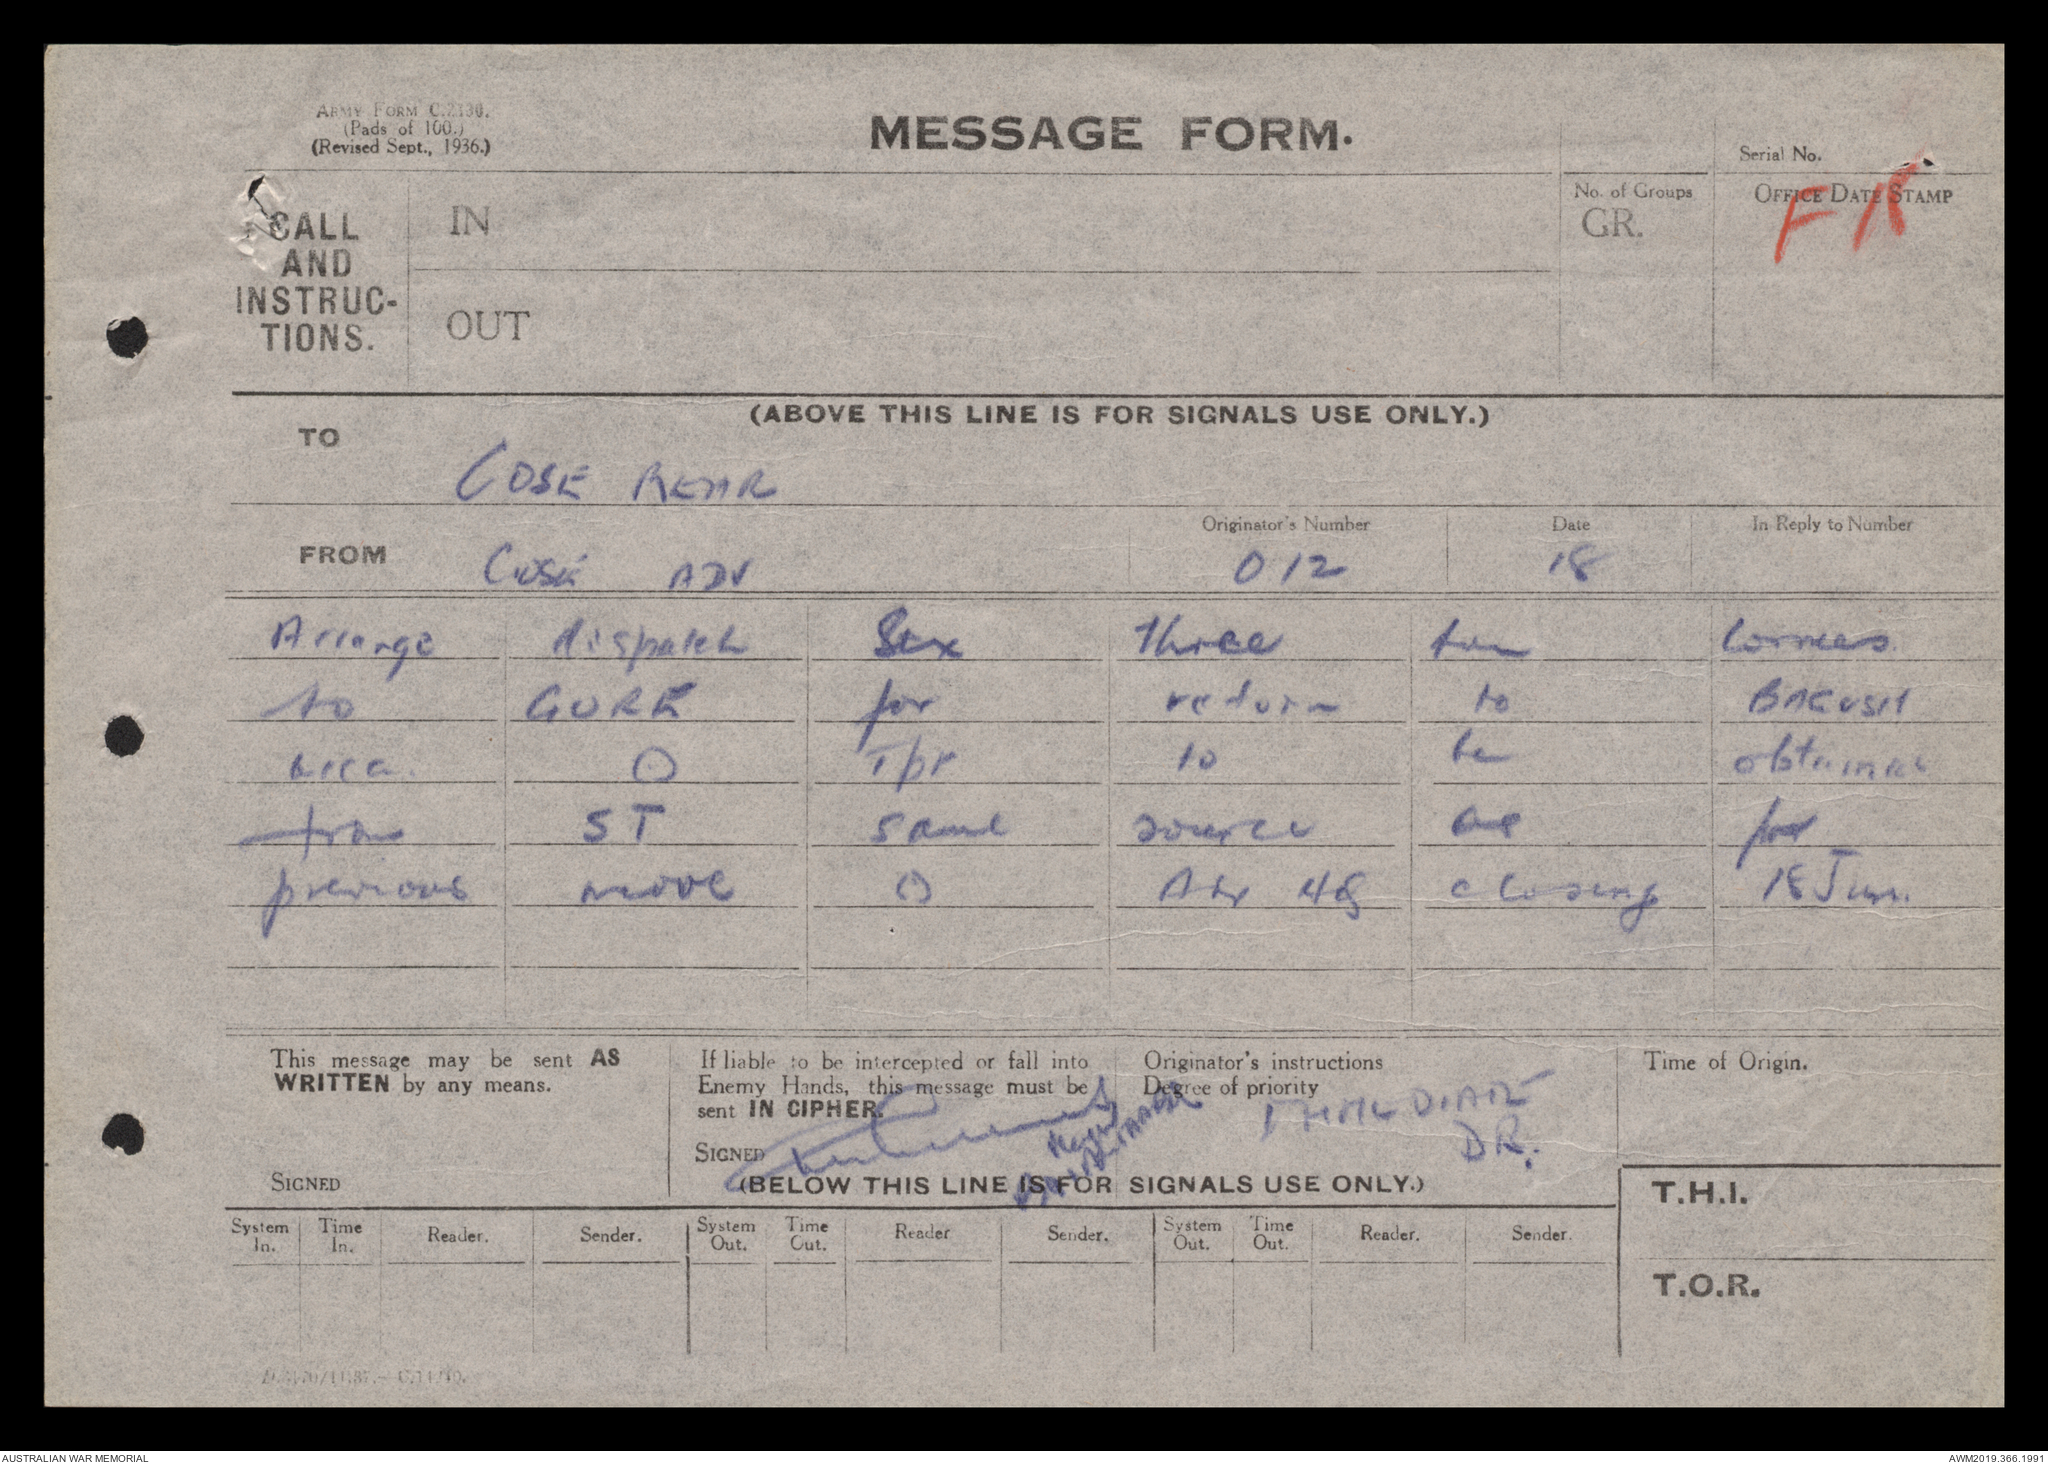 ARMY FORM C.2130.
(Pads of 100.)
(Revised Sept., 1936.)
MESSAGE FORM.
Serial No.
CALL AND INSTRUC-TIONS.
IN
No. of Groups
GR.
OFFICE DATE STAMP
OUT
(ABOVE THIS LINE IS FOR SIGNALS USE ONLY.)
TO
COSE REAR
FROM
COSE ADV
Originator's Number
O 12
Date
18
In Reply to Number
Arrange dispatch six three ton lorries
to GORE for return to BACUSH
area. O Tpt to be obtained
from ST same source as for
previous move O 48 closing 18 Jun.
This message may be sent AS
WRITTEN by any means.
SIGNED
If liable to be intercepted or fall into
Enemy Hands, this message must be
sent IN CIPHER.
SIGNED
Originator's instructions
Degree of priority
IMMEDIATE
DR.
Time of Origin.
(BELOW THIS LINE IS FOR SIGNALS USE ONLY.)
T.H.I.
System In. Time In. Reader. Sender. System Out. Time Out. Reader Sender. System Out. Time Out. Reader. Sender.
T.O.R.
AUSTRALIAN WAR MEMORIAL
AWM2019.366.1991